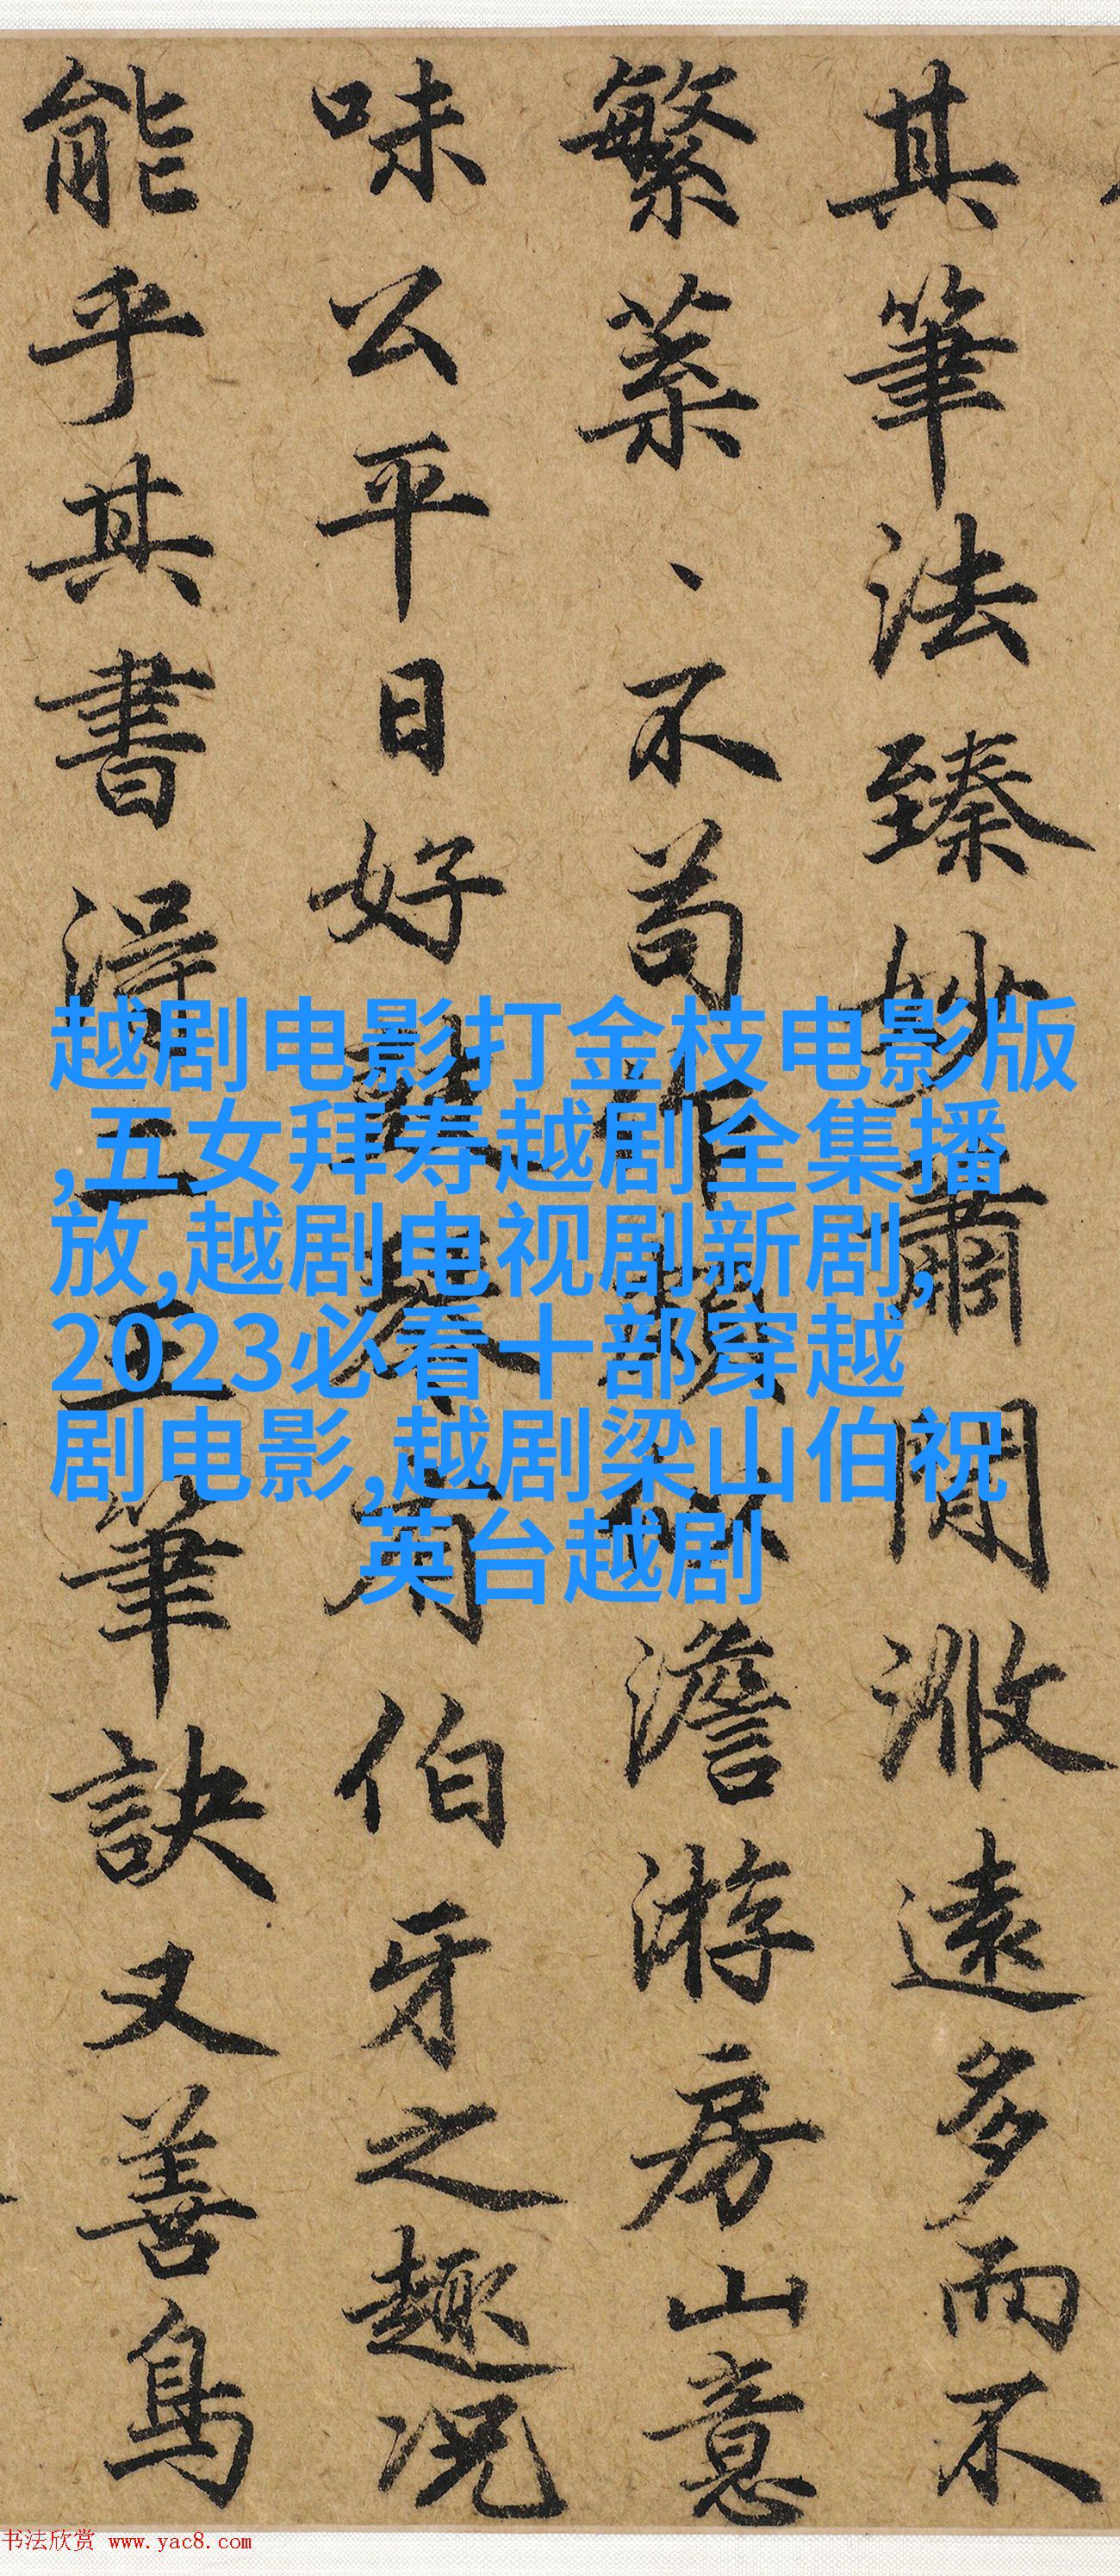 其筆法臻妙蕭閒遠多而不
繁、不苟作頗似澹游房山意
味公平日好鼓琴有伯牙之趣況
能乎其書得二王筆訣又善鳥
越剧电影打金枝电影版
,五女拜寿越剧全集播
放,越剧电视剧新剧,
2023必看十部穿越
剧电影,越剧梁山伯祝
英台越剧
书法欣赏 www.yac8.com